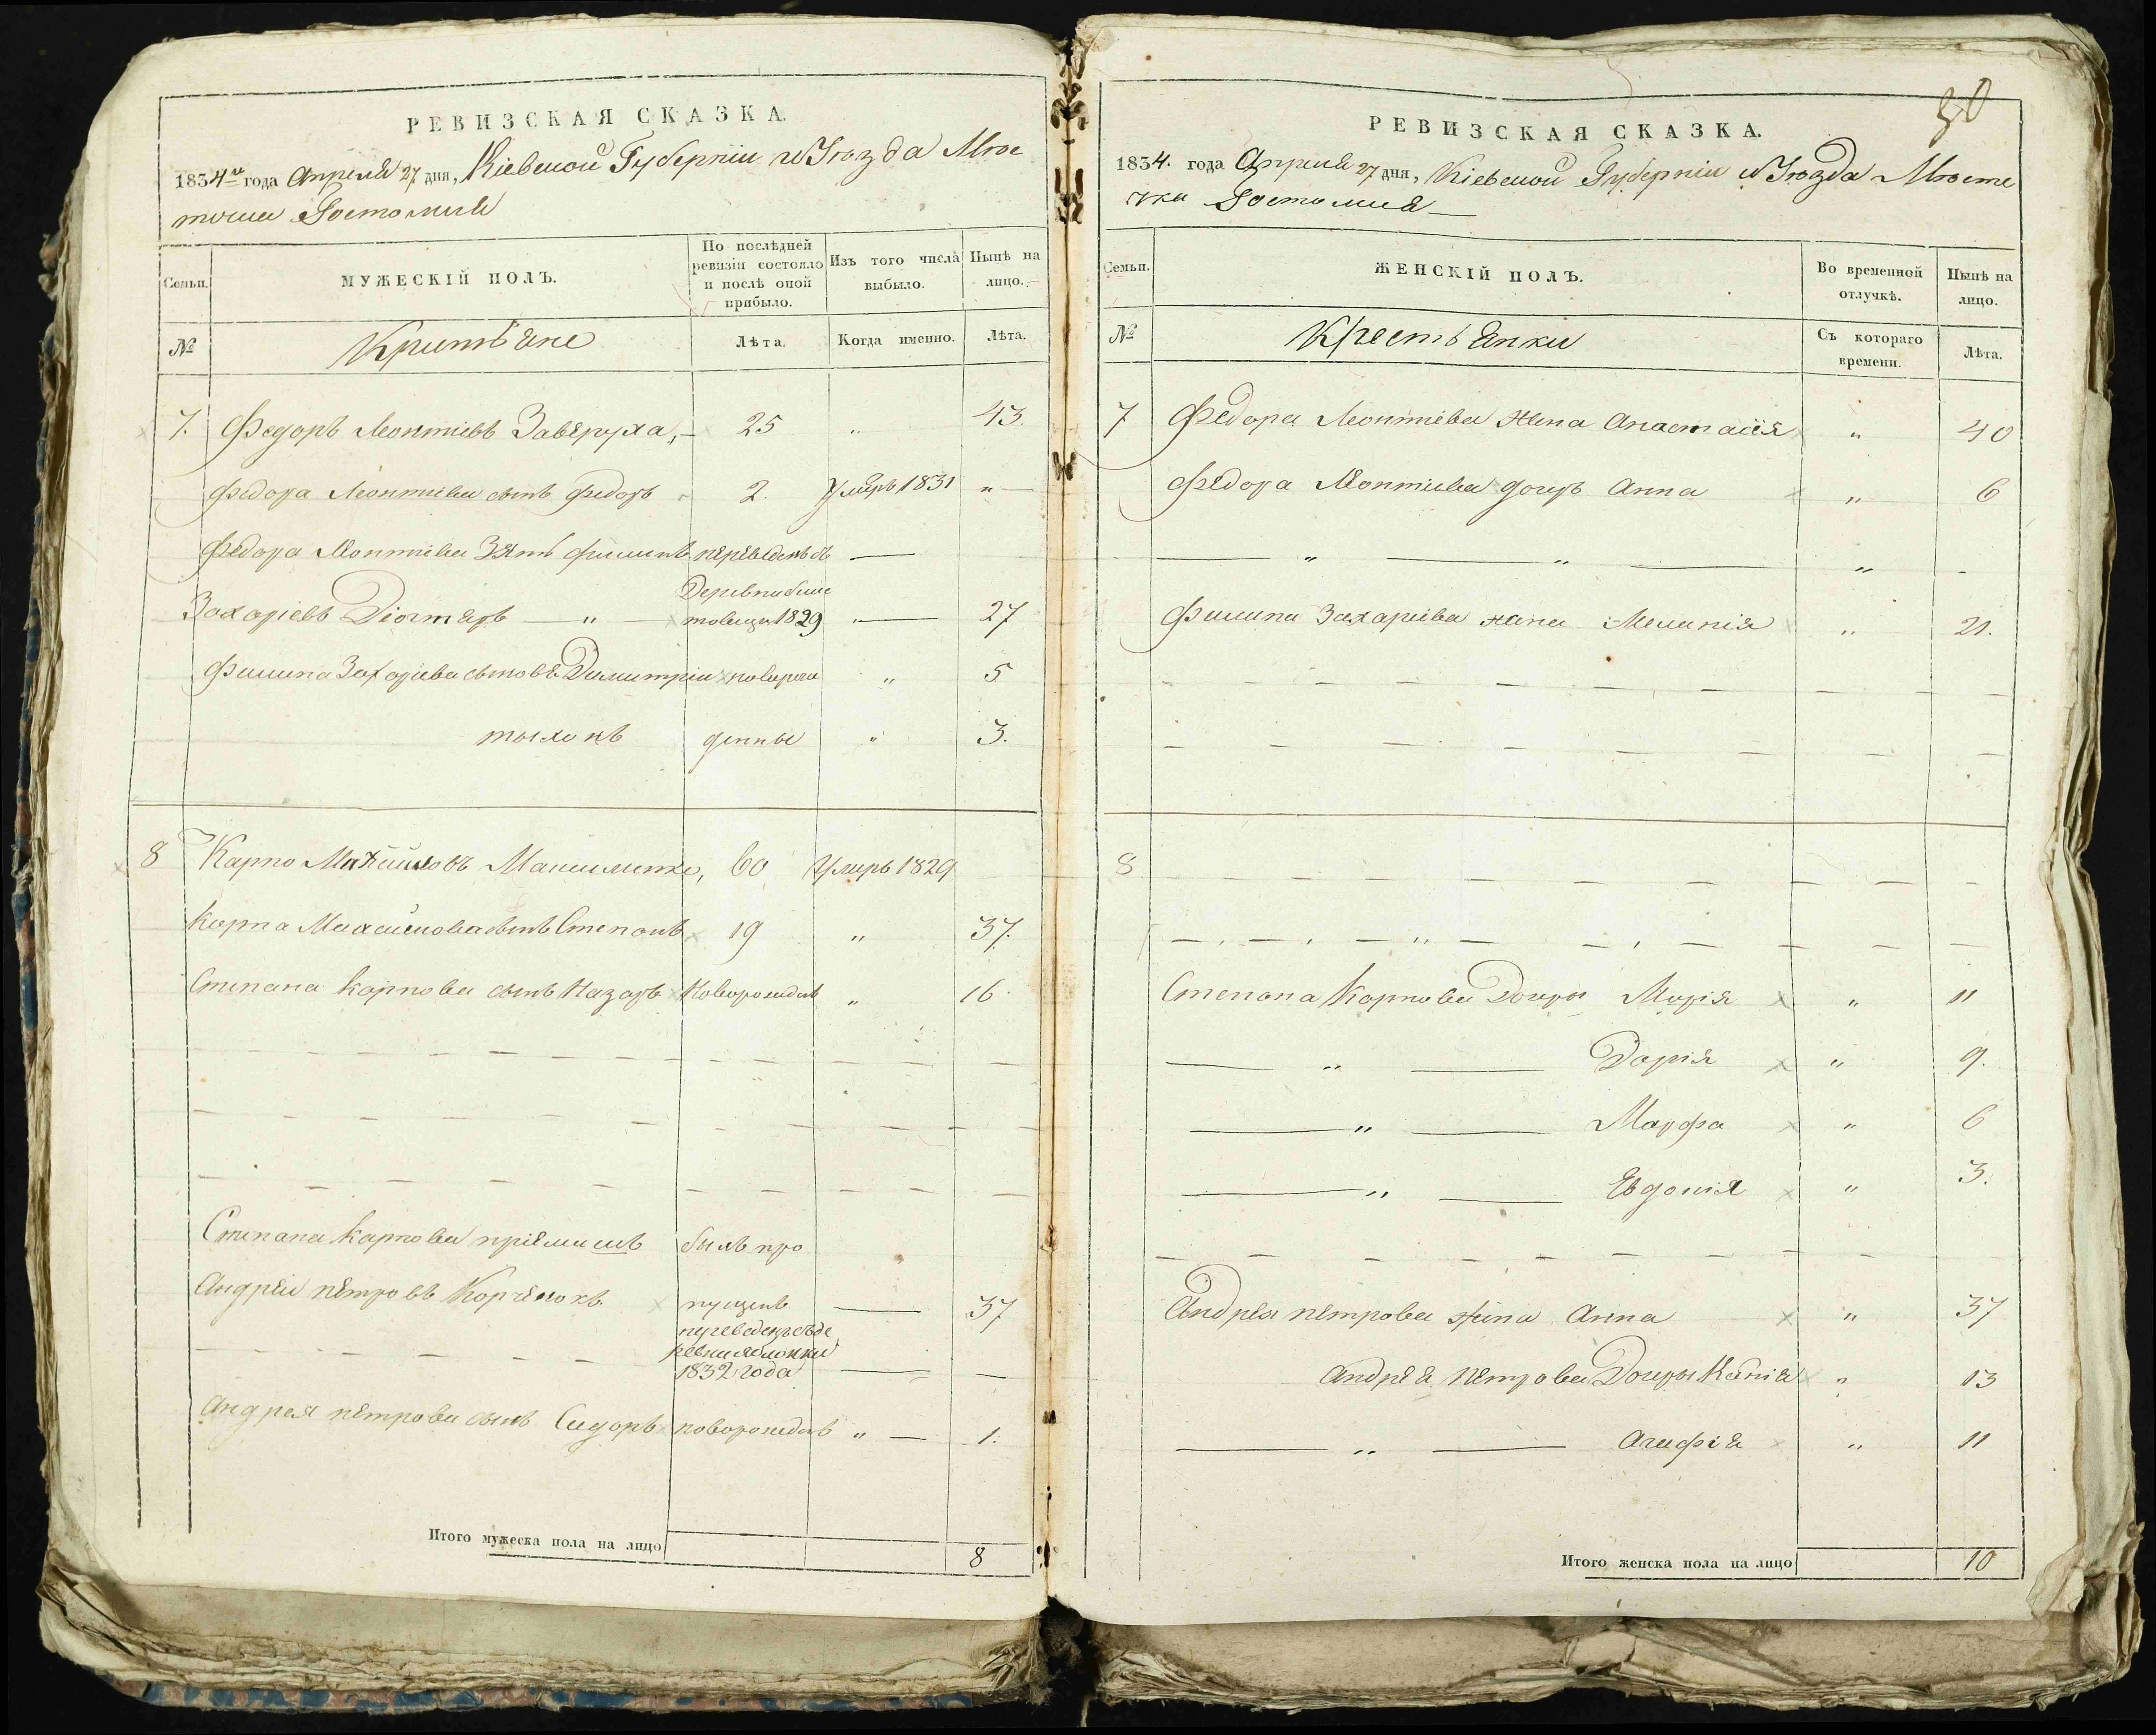 РЕВИЗСКАЯ СКАЗКА.
1834го года Апреля 27 дня, Кіевской Губерніи и Уѣзда Мѣс
точка Гостомля
Семьи.
МУЖЕСКІЙ ПОЛЪ.
По послѣдней ревизіи состояло и послѣ оной прибыло.
Изъ того числа выбыло.
Нынѣ на лицо.
№
Крестьяне
Лѣта
Когда именно.
Лѣта.
7. Федоръ Леонтіевъ Заверуха, 25 „ 43.
Федора Леонтіева сынъ Федоръ 2. Умеръ 1831 „
Федора Леонтіева Зять Филипъ переведенъ съ
Деревни
Захаріевъ Діогтяръ „ 1829 „ 27
Филипа Захаріева сыновѣ Димитріи новорож 5
тыхонъ денные „ 3.
8 Карпо Михайловъ Максименко, 60 Умеръ 1829
Карпа Михайлова сынъ Степанъ 19 „ 37.
Степана Карпова сынъ Назаръ Новорожденъ „ 16
Степана Карпова пріемышъ былъ про
Андрей петровъ Корченокъ пущенъ 37
переведенъ съ де
ревни яблонки
1832 года
Андрея петрова сынъ Сидоръ новорожденъ „ 1.
Итого мужеска пола на лицо 8
30
РЕВИЗСКАЯ СКАЗКА.
1834. года Апреля 27 дня, Кіевской Губерніи и Уѣзда Мѣсте
чка Гостомля
Семьи.
ЖЕНСКІЙ ПОЛЪ.
Во временной отлучкѣ.
Нынѣ на лицо.
№
Крестьянки
Съ котораго времени.
Лѣта.
7 Федора Леонтіева жена Анастасія „ 40
Федора Леонтіева дочерь Анна „ 6
„ „ „
Филипа Захаріева жена Меланія „ 21.
8
Степана Карпова Дочеры Марія „ 11
„ Дарія „ 9.
„ Марфа „ 6
„ Евдокія „ 3.
Андрея петрова жена Анна „ 37
Андрея Петрова Дочеры „ 13
„ Агафія „ 11
Итого женска пола на лицо 10